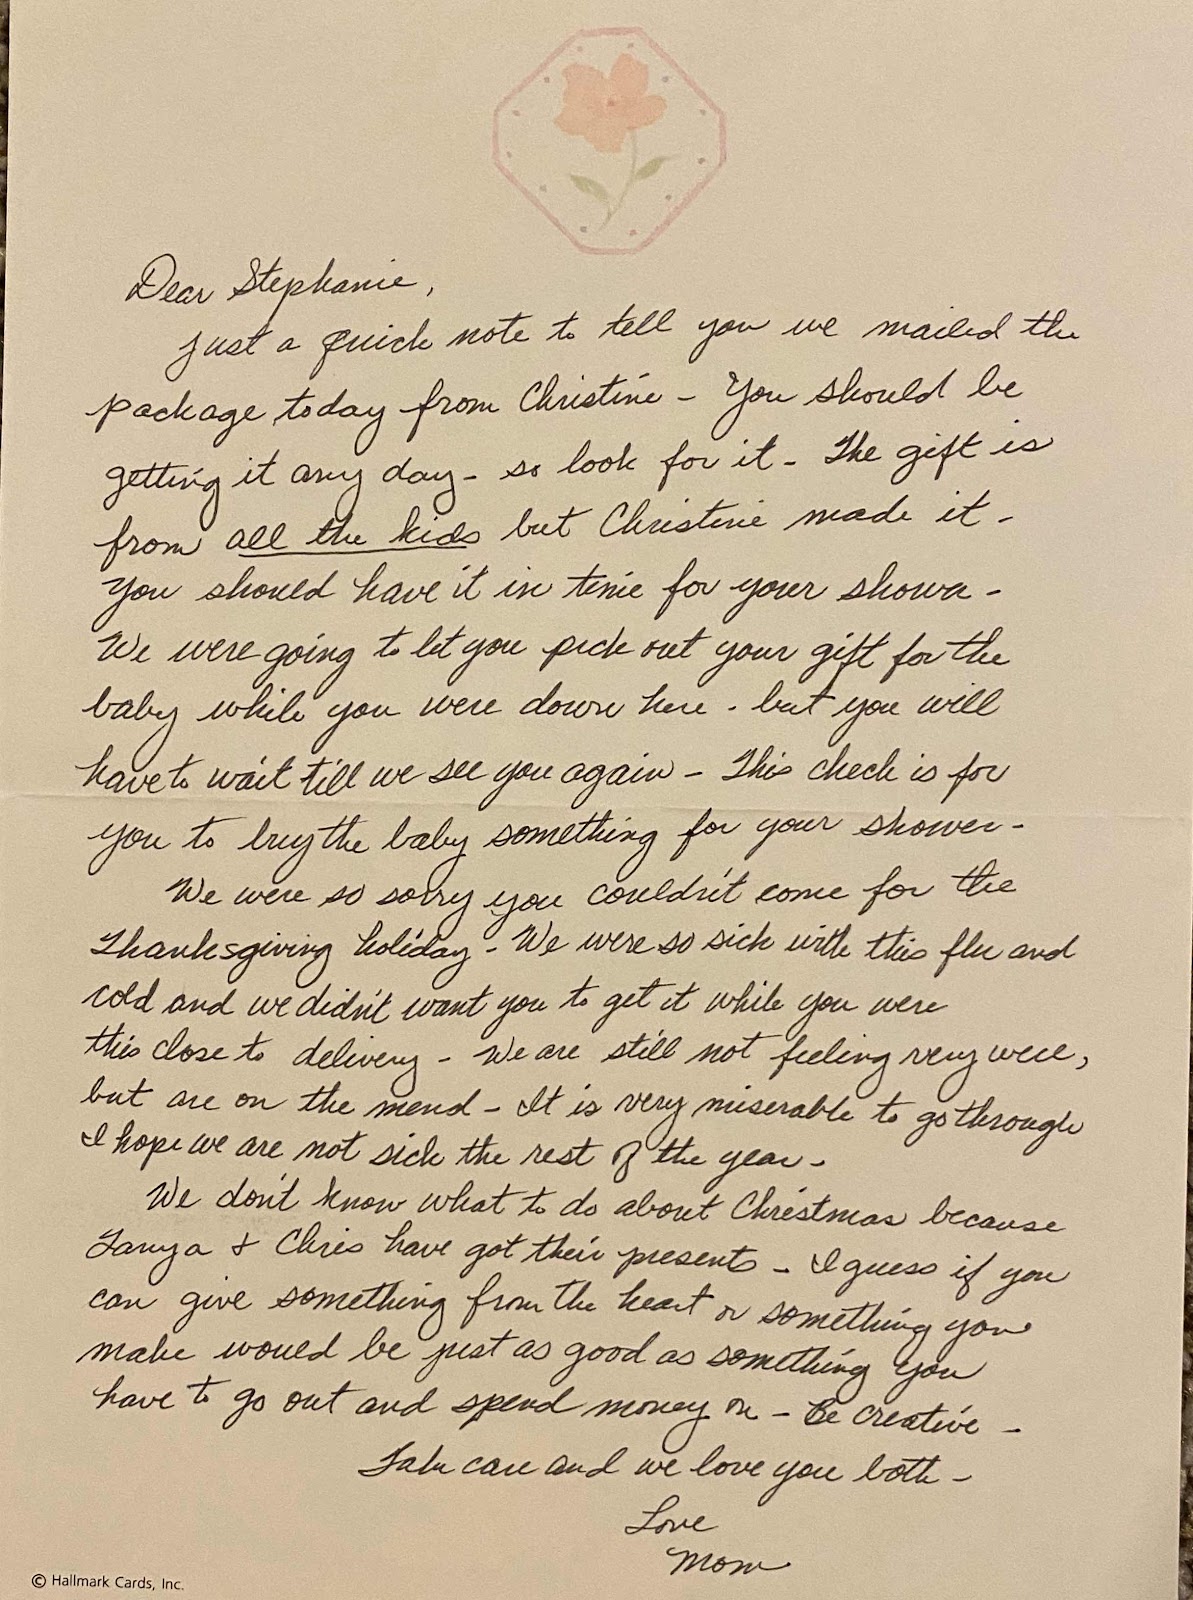 Dear Stephanie,
Just a quick note to tell you we mailed the
package today from Christine - You should be
getting it any day - so look for it - The gift is
from all the kids but Christine made it -
You should have it in time for your shower -
We were going to let you pick out your gift for the
baby while you were down here - but you will
have to wait till we see you again - This check is for
you to buy the baby something for your shower -
We were so sorry you couldn't come for the
Thanksgiving holiday - We were so sick with this flu and
cold and we didn't want you to get it while you were
this close to delivery - We are still not feeling very well,
but are on the mend - It is very miserable to go through
I hope we are not sick the rest of the year -
We don't know what to do about Christmas because
Tanya & Chris have got their presents - I guess if you
can give something from the heart or something you
make would be just as good as something you
have to go out and spend money on - Be creative -
Take care and we love you both -
Love
Mom
© Hallmark Cards, Inc.